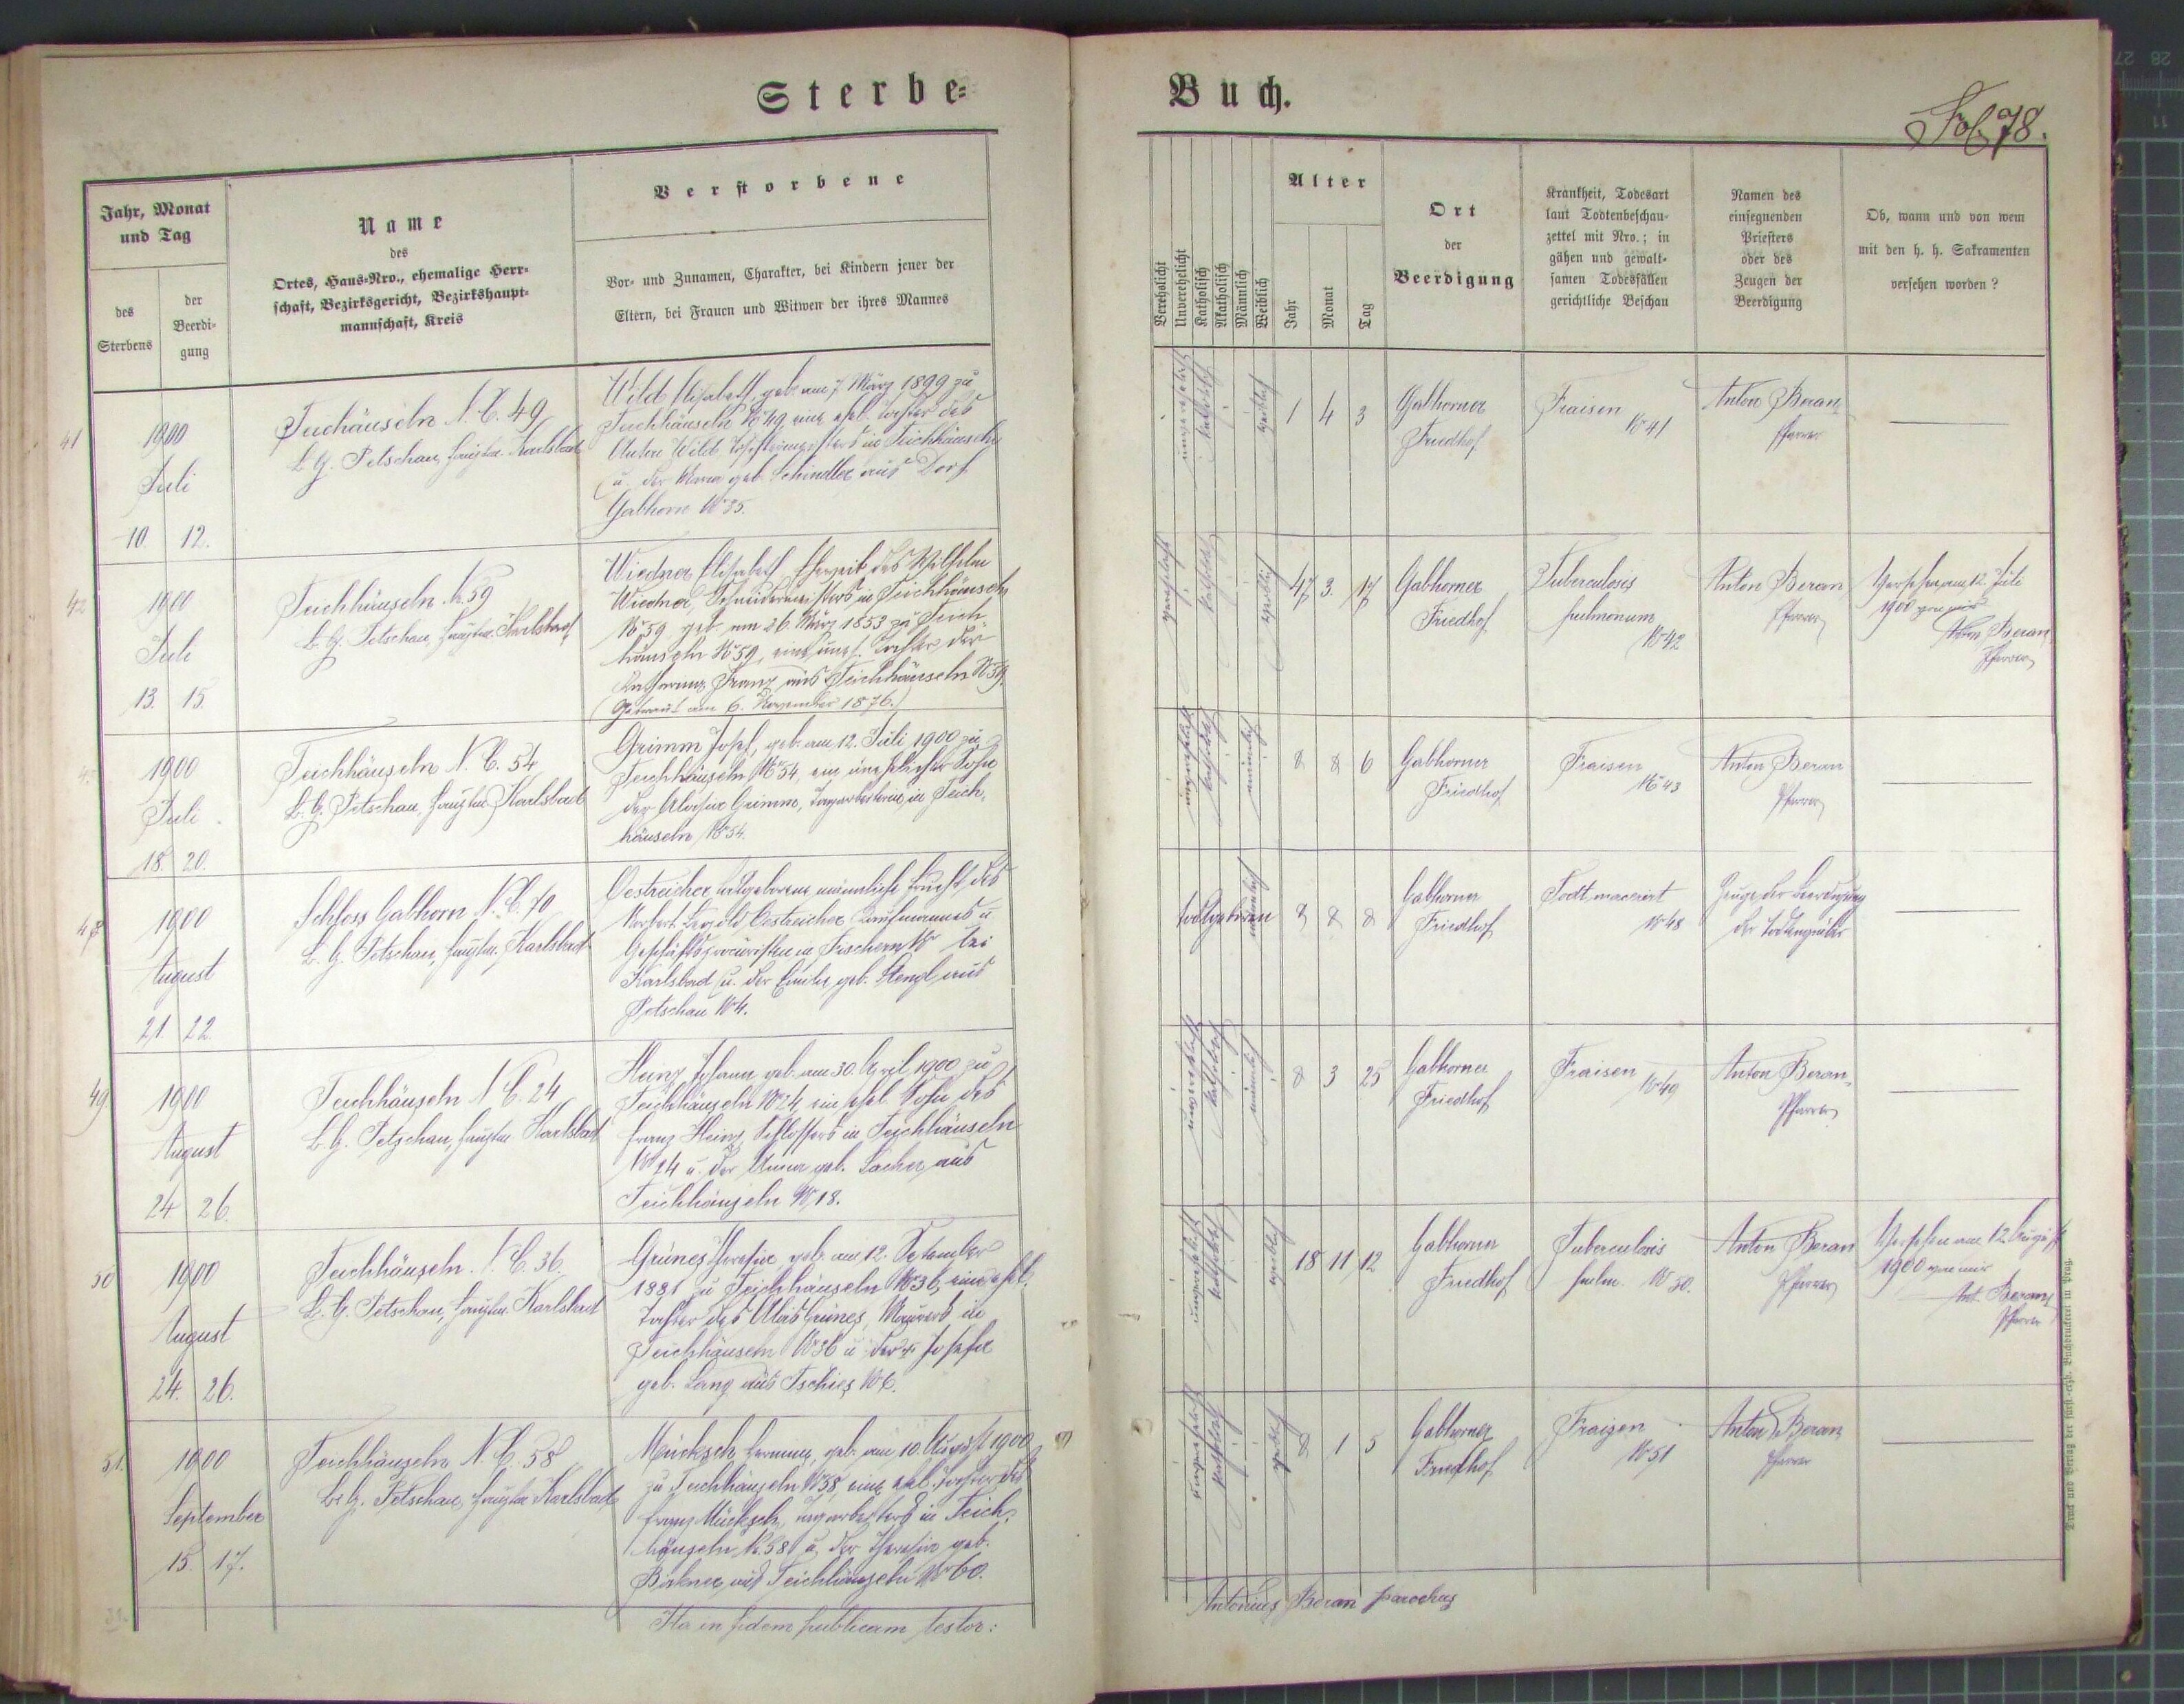 Sterbe-
Buch.
Fol. 78.
Jahr, Monat
und Tag
des
Sterbens
der
Beerdi-
gung
Name
des
Ortes, Haus-Nro., ehemalige Herr-
schaft, Bezirksgericht, Bezirkshaupt-
mannschaft, Kreis
Verstorbene
Vor- und Zunamen, Charakter, bei Kindern jener der
Eltern, bei Frauen und Witwen der ihres Mannes
Verehelicht
Unverehelicht
Katholisch
Akatholisch
Männlich
Weiblich
Alter
Jahr
Monat
Tag
Ort
der
Beerdigung
Krankheit, Todesart
laut Todtenbeschau-
zettel mit Nro.; in
gähen und gewalt-
samen Todesfällen
gerichtliche Beschau
Namen des
einsegnenden
Priesters
oder des
Zeugen der
Beerdigung
Ob, wann und von wem
mit den h. h. Sakramenten
versehen worden?
41
1900
Juli
10. 12.
Teichäuseln N. C. 49
B. G. Petschau, Karlsbad
Wild Elisabeth, geb. am 7 März 1899 zu
Teichhäuseln No 49, eine ehel. Tochter des
Anton Wild in Teichhäuseln
u. der Anna geb. Schindler aus Dorf
Gabhorn No 35.
unverehelicht
katholisch
weiblich
1 4 3
Gabhorner
Friedhof
Fraisen
No 41
Anton Beran
Pfarrer
42
1900
Juli
13. 15.
Teichhäuseln No 59
B. G. Petschau, Karlsbad
Wiedner Elisabeth, Eheweib des Wilhelm
Wiedner, Schneidermeisters in Teichhäuseln
No 59 geb. am 26. März 1853 zu Teich-
häuseln No 59, eine unehel. Tochter der
Katharina Franz aus Teichhäuseln No 59.
(Getraut am 6. November 1876.)
verehelicht
katholisch
weiblich
47 3. 17
Gabhorner
Friedhof
Tuberculosis
pulmonum
No 42
Anton Beran
Pfarrer
Versehen am 12. Juli
1900 von mir
Anton Beran
Pfarrer
1900
Juli
18. 20.
Teichhäuseln N. C. 54
B. G. Petschau, Karlsbad
Grimm Josef, geb. am 12. Juli 1900 zu
Teichhäuseln No 54, ein unehelicher Sohn
der Aloisia Grimm, Tagarbeiterin in Teich-
häuseln No 54.
unverehelicht
katholisch
männlich
6
Gabhorner
Friedhof
Fraisen
No 43
Anton Beran
Pfarrer
48
1900
August
21. 22.
Schloss Gabhorn N. C. 70
B. G. Petschau, Karlsbad
Oestreicher, todtgeborene männliche Frucht des
Norbert Leopold Oestreicher Kaufmannes u.
Geschäftsprocuristen in Fischern bei
Karlsbad u. der Emilie, geb. Stengl aus
Petschau No 4.
todtgeboren
männlich
Gabhorner
Friedhof
Todt macerirt
No 48
Zeuge der Beerdigung
der Todtengräber
49
1900
August
24 26.
Teichhäuseln N. C. 24
B. G. Petschau, Karlsbad
Heinz Johann geb. am 30. April 1900 zu
Teichhäuseln No 24, ein ehel. Sohn des
Franz Heinz, Schlossers in Teichhäuseln
No 24 u. der Anna geb. Lacher aus
Teichhäuseln No 18.
unverehelicht
katholisch
männlich
3 25
Gabhorner
Friedhof
Fraisen
No 49
Anton Beran
Pfarrer
50
1900
August
24. 26.
Teichhäuseln N. C. 36
B. G. Petschau, Karlsbad
Grünes Theresia, geb. am 12. September
1881 zu Teichhäuseln No 36, eine ehel.
Tochter des Alois Grünes, Maurers in
Teichhäuseln No 36 u. der Josefa
geb. Lang aus Tschies No 6.
unverehelicht
katholisch
weiblich
18 11 12
Gabhorner
Friedhof
Tuberculosis
pulm. No 50.
Anton Beran
Pfarrer
Versehen am 12 August
1900 von mir
Ant. Beran
Pfarrer
51.
1900
September
15. 17.
Teichhäuseln N. C. 58
B. G. Petschau, Karlsbad
Mücksch Hermine, geb. am 10. August 1900
zu Teichhäuseln No 58, eine ehel. Tochter des
Franz Mücksch, Tagarbeiters in Teich-
häuseln No. 58 u. der Theresia geb.
Birkner aus Teichhäuseln No 60.
unverehelicht
katholisch
weiblich
1 5
Gabhorner
Friedhof
Fraisen
No 51
Anton Beran
Pfarrer
Ita in fidem publicam testor:
Antonius Beran parochus
Druck und Verlag der fürst.-erzb. Buchdruckerei in Prag.